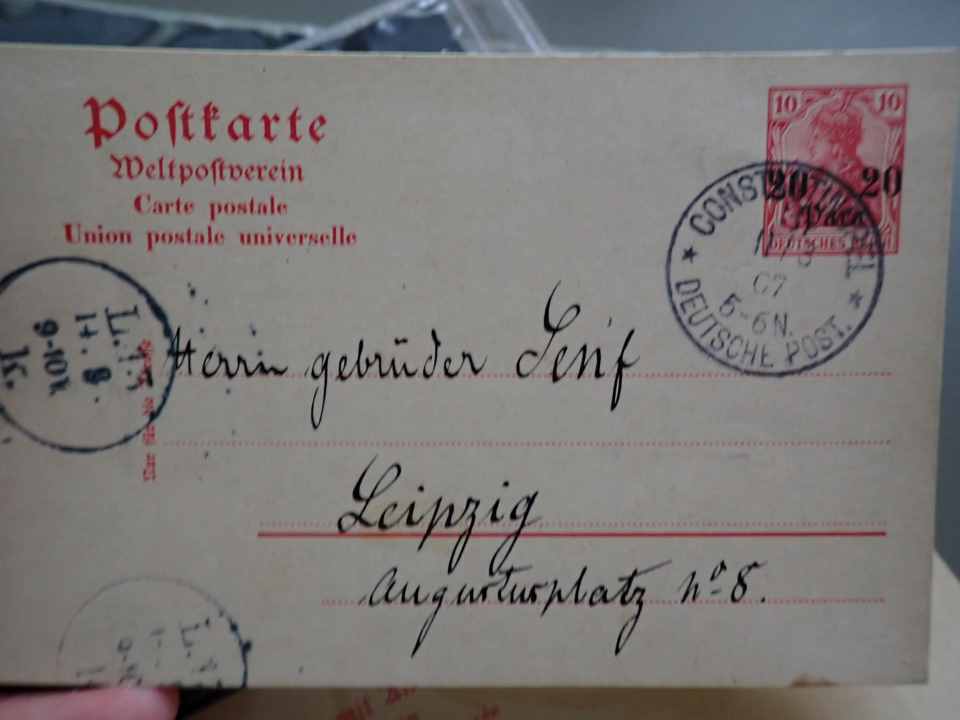 Postkarte
Weltpostverein
Carte postale
Union postale universelle
10 10
20 20
Para
DEUTSCHES REICH
CONSTANTINOPEL
07
5-6N.
* DEUTSCHE POST. *
L.
14. 8
9-10
K.
Herrn gebrüder Senf
Leipzig
Augustusplatz No 8.
L.